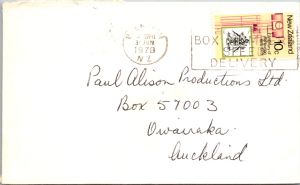 1978
N.Z.
BOX
DELIVERY
New Zealand
10c
Paul Alison Productions Ltd.
Box 57003
Owairaka
Auckland